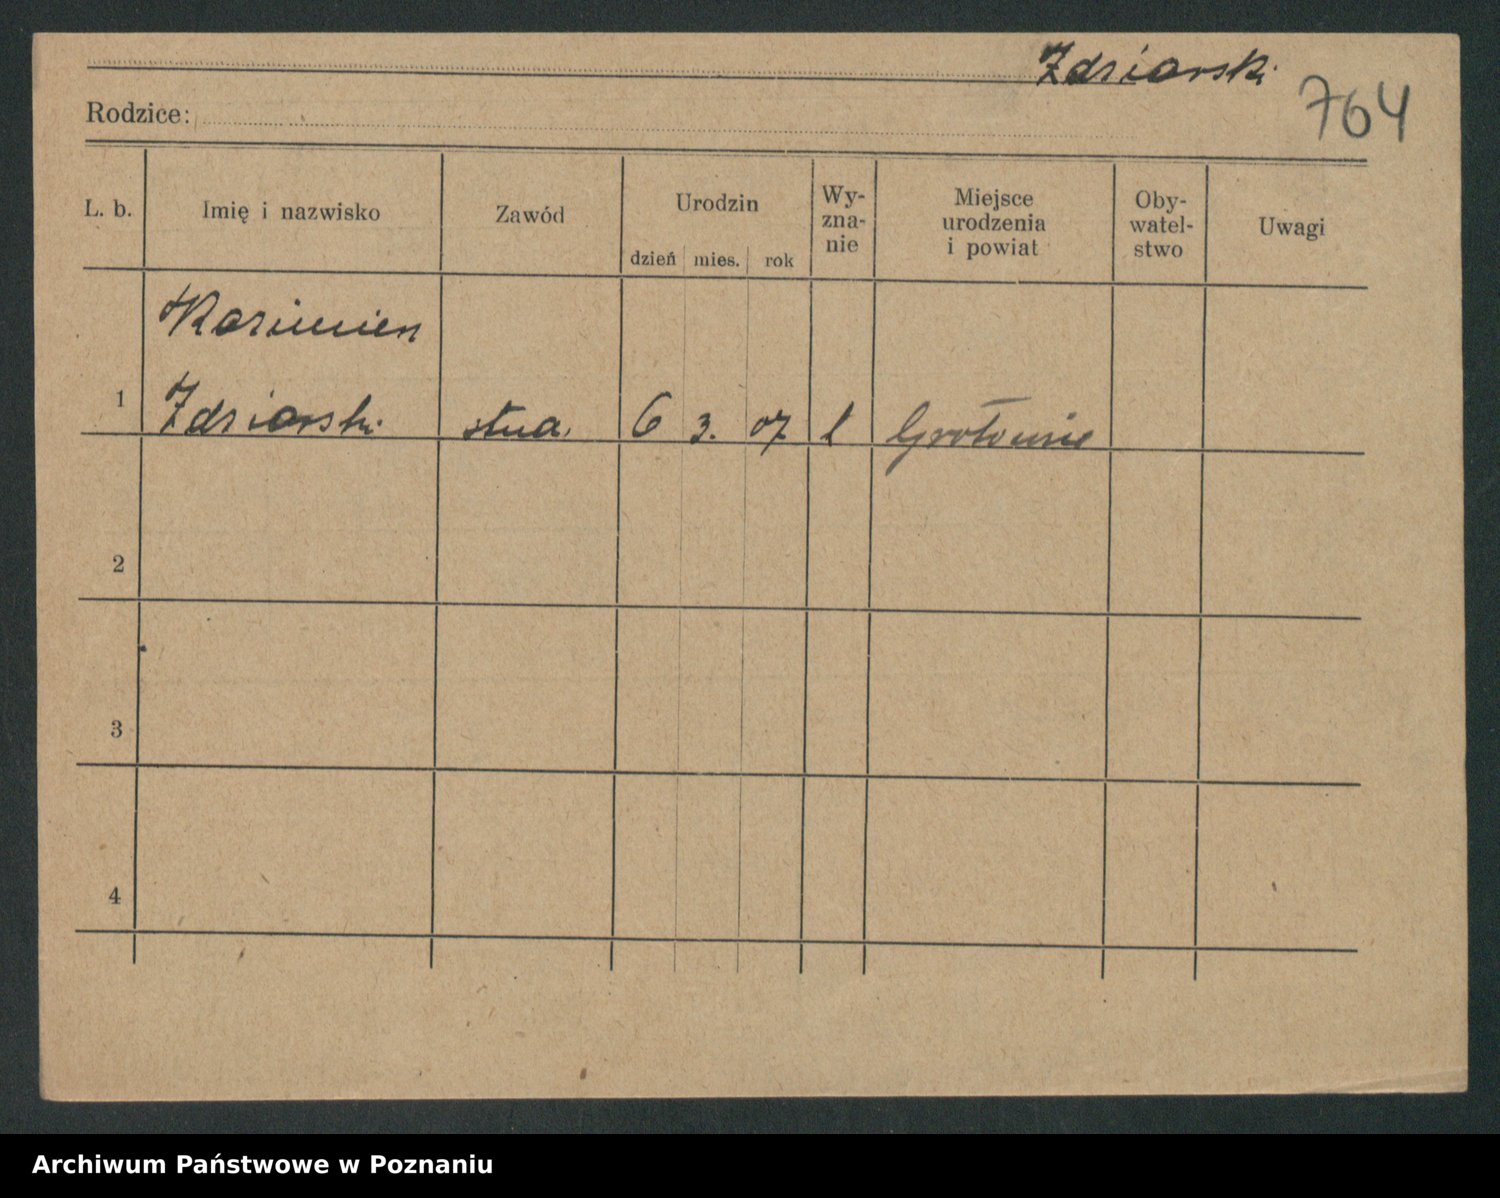 Zdziarski
764
Rodzice:
L. b. Imię i nazwisko Zawód Urodzin dzień mies. rok Wy-zna-nie Miejsce urodzenia i powiat Oby-watel-stwo Uwagi
Kazimierz
1 Zdziarski stud. 6 3. 07 k
2
3
4
Archiwum Państwowe w Poznaniu